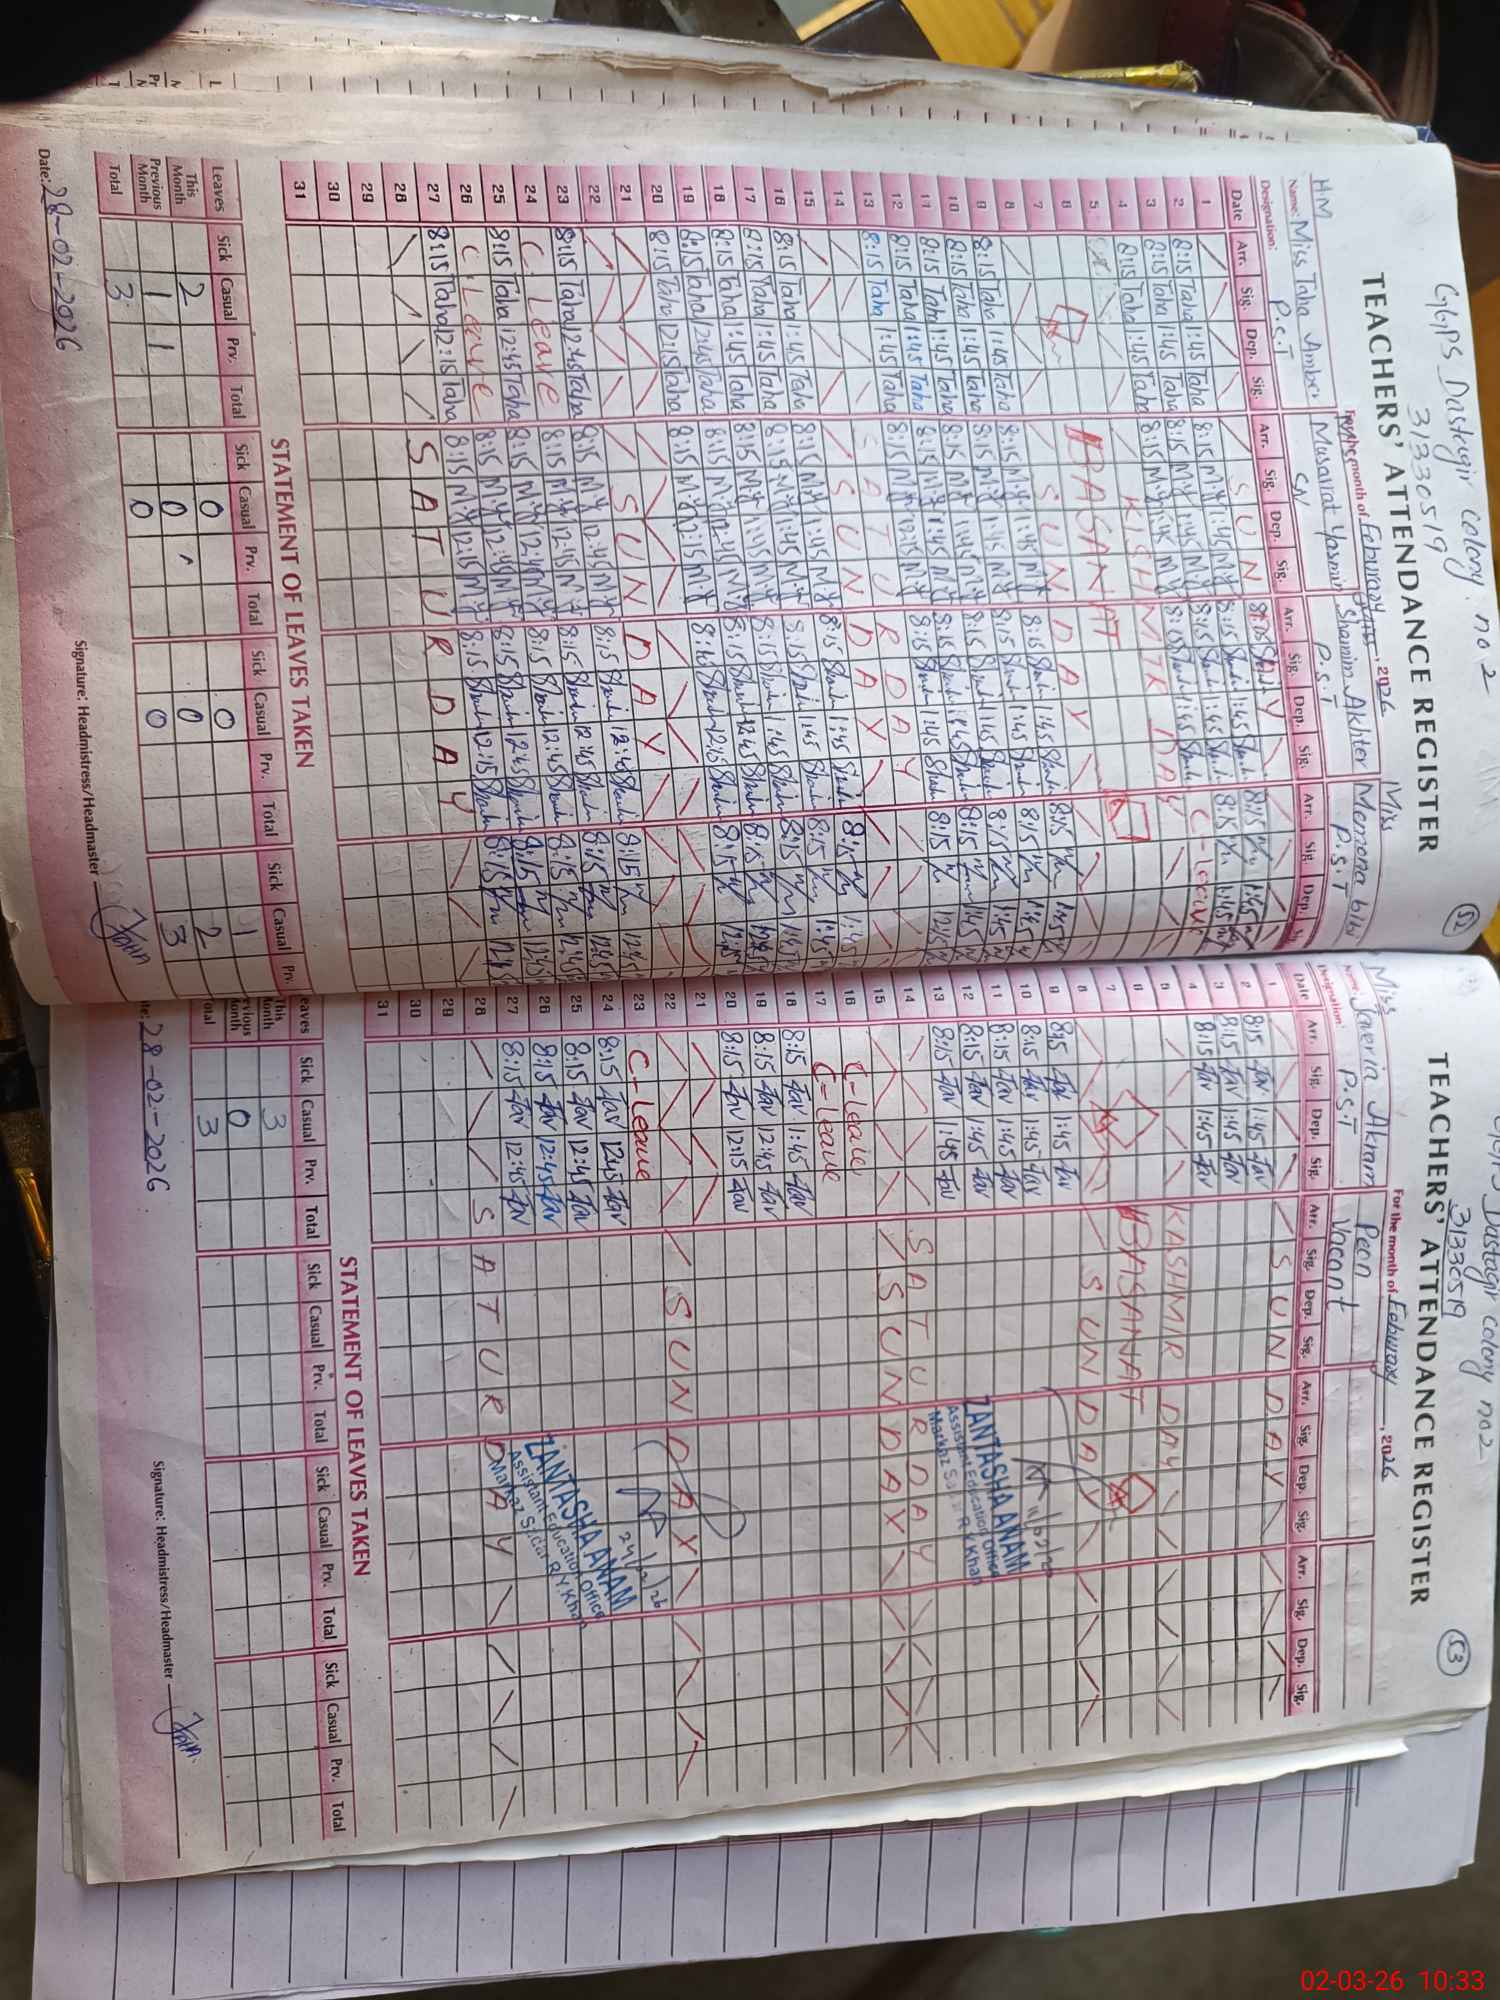 GGPS Dastegir colony no 2
31330519
52
TEACHERS' ATTENDANCE REGISTER
For the month of Feburary, 2026
HM
Name: Miss Taha Amber Musarrat Yasmin Shamim Akhter Miss Memona bibi
Designation: P.S.T P.S.T P.S.T
Date Arr. Sig. Dep. Sig. Arr. Sig. Dep. Sig. Arr. Sig. Dep. Sig. Arr. Sig. Dep.
1 SUNDAY
2 8:15 Taha 1:45 Taha 8:15 M.Y 1:45 M.Y 8:15 1:45 8:15 1:45
3 8:15 Taha 1:45 Taha 8:15 M.Y 1:45 M.Y 8:15 1:45 8:15 1:45
4 8:15 Taha 1:45 Taha 8:15 M.Y 1:45 M.Y 8:15 1:45 C-leave
5 KISHMIR DAY
6 BASANAT
7
8 SUNDAY
9 8:15 Taha 1:45 Taha 8:15 M.Y 1:45 M.Y 8:15 1:45 8:15 1:45
10 8:15 Taha 1:45 Taha 8:15 M.Y 1:45 M.Y 8:15 1:45 8:15 1:45
11 8:15 Taha 1:45 Taha 8:15 M.Y 1:45 M.Y 8:15 1:45 8:15 1:45
12 8:15 Taha 1:45 Taha 8:15 M.Y 1:45 M.Y 8:15 1:45 8:15 1:45
13 8:15 Taha 1:45 Taha 8:15 M.Y 12:15 M.Y 8:15 1:45 8:15 12:15
14 SATURDAY
15 SUNDAY
16 8:15 Taha 1:45 Taha 8:15 M.Y 1:45 M.Y 8:15 1:45 8:15 1:45
17 8:15 Taha 1:45 Taha 8:15 M.Y 1:45 M.Y 8:15 1:45 8:15 1:45
18 8:15 Taha 1:45 Taha 8:15 M.Y 1:45 M.Y 8:15 1:45 8:15 1:45
19 8:15 Taha 12:45 Taha 8:15 M.Y 12:45 M.Y 8:15 12:45 8:15 12:45
20 8:15 Taha 12:15 Taha 8:15 M.Y 12:15 M.Y 12:15 8:15 12:15
21
22 SUNDAY
23 8:15 Taha 12:45 Taha 8:15 M.Y 12:45 M.Y 8:15 12:45 8:15 12:45
24 C. Leave 8:15 M.Y 12:45 M.Y 8:15 12:45 8:15 12:45
25 8:15 Taha 12:45 Taha 8:15 M.Y 12:45 M.Y 8:15 12:45 8:15 12:45
26 C. Leave 8:15 M.Y 12:45 M.Y 8:15 12:45 8:15 12:45
27 8:15 Taha 12:15 Taha 8:15 M.Y 12:15 M.Y 8:15 12:15 8:15
28 SATURDAY
29
30
31
STATEMENT OF LEAVES TAKEN
Leaves Sick Casual Prv. Total Sick Casual Prv. Total Sick Casual Prv. Total Sick Casual Prv.
This Month 2 0 0 1
Previous Month 1 1 0 0 2
Total 3 0 0 3
Date: 28-02-2026
Signature: Headmistress/Headmaster
Dastagir colony no 2
31330519
53
TEACHERS' ATTENDANCE REGISTER
For the month of Feburary, 2026
Miss
Name: Javeria Akram Peon
Designation: P.S.T Vacant
Date Arr. Sig. Dep. Sig. Arr. Sig. Dep. Sig. Arr. Sig. Dep. Sig. Arr. Sig. Dep. Sig.
1 SUNDAY
2 8:15 Jav 1:45 Jav
3 8:15 Jav 1:45 Jav
4 8:15 Jav 1:45 Jav
5 KASHMIR DAY
6 BASANAT
7
8 SUNDAY
9 8:15 Jav 1:45 Jav
10 8:15 Jav 1:45 Jav
11 8:15 Jav 1:45 Jav
12 8:15 Jav 1:45 Jav
13 8:15 Jav 1:45 Jav
ZANTASHA ANAM
Assistant Education Officer
Markaz R Y Khan
14 SATURDAY
15 SUNDAY
16 C-leave
17 C-leave
18 8:15 Jav 1:45 Jav
19 8:15 Jav 12:45 Jav
20 8:15 Jav 12:15 Jav
21
22 SUNDAY
23 C-leave
24 8:15 Jav 12:45 Jav
24/02/26
25 8:15 Jav 12:45 Jav
26 8:15 Jav 12:45 Jav
27 8:15 Jav 12:45 Jav
ZANTASHA ANAM
Assistant Education Officer
Markaz Sadar R.Y.Khan
28 SATURDAY
29
30
31
STATEMENT OF LEAVES TAKEN
Leaves Sick Casual Prv. Total Sick Casual Prv. Total Sick Casual Prv. Total Sick Casual Prv. Total
This Month 3
Previous Month 0
Total 3
Date: 28-02-2026
Signature: Headmistress/Headmaster
02-03-26 10:33